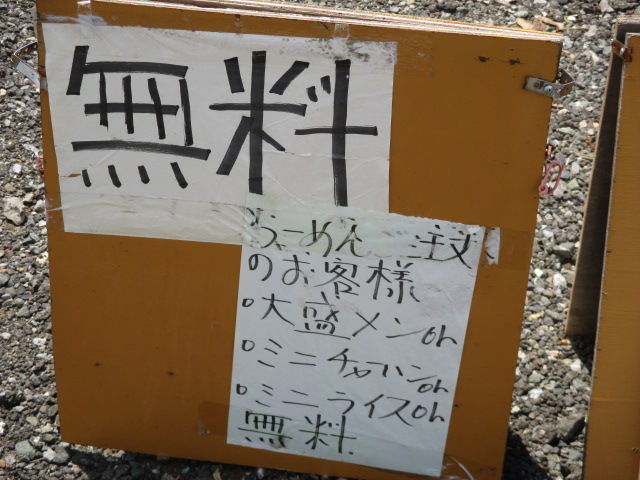 無料
らーめん 注文
のお客様
○大盛メンor
○ミニチャーハンor
○ミニライスor
無料